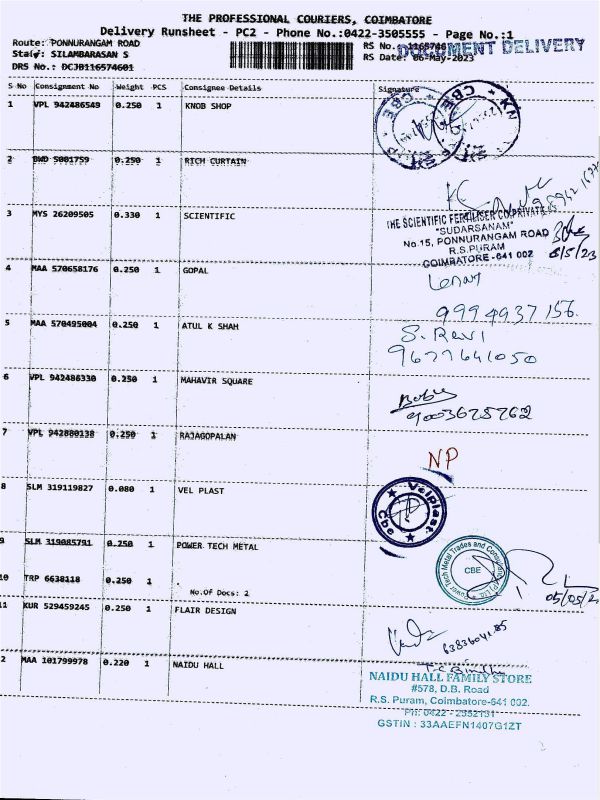 THE PROFESSIONAL COURIERS, COIMBATORE
Delivery Runsheet - PC2 - Phone No.:0422-3505555 - Page No.:1
Route: PONNURANGAM ROAD
RS No. 1165746
DOCUMENT DELIVERY
Staff: SILAMBARASAN S
RS Date: 06-May-2023
DRS No.: DCJB116574601
S No Consignment No Weight PCS Consignee Details Signature
1 VPL 942486549 0.250 1 KNOB SHOP
CBE
2 DWD 5001759 0.250 1 RICH CURTAIN
3 MYS 26209505 0.330 1 SCIENTIFIC
THE SCIENTIFIC FERTILISER CO.PRIVATE
"SUDARSANAM"
No.15, PONNURANGAM ROAD
R.S.PURAM
COIMBATORE-641 002
6/5/23
4 MAA 570658176 0.250 1 GOPAL
9994937 156.
5 MAA 570495004 0.250 1 ATUL K SHAH
S. Ravi
9677641050
6 VPL 942486330 0.250 1 MAHAVIR SQUARE
Babu
9003675762
7 VPL 942880138 0.250 1 RAJAGOPALAN
NP
8 SLM 319119827 0.080 1 VEL PLAST
Velplast
Cbe
9 SLM 319085791 0.250 1 POWER TECH METAL
Power Tech Metal Trades and Consulting
CBE
10 TRP 6638118 0.250 1 .
No.Of Docs: 2
11 KUR 529459245 0.250 1 FLAIR DESIGN
6383604185
2 MAA 101799978 0.220 1 NAIDU HALL
NAIDU HALL FAMILY STORE
#578, D.B. Road
R.S. Puram, Coimbatore-641 002.
PH: 0422 - 2552131
GSTIN : 33AAEFN1407G1ZT